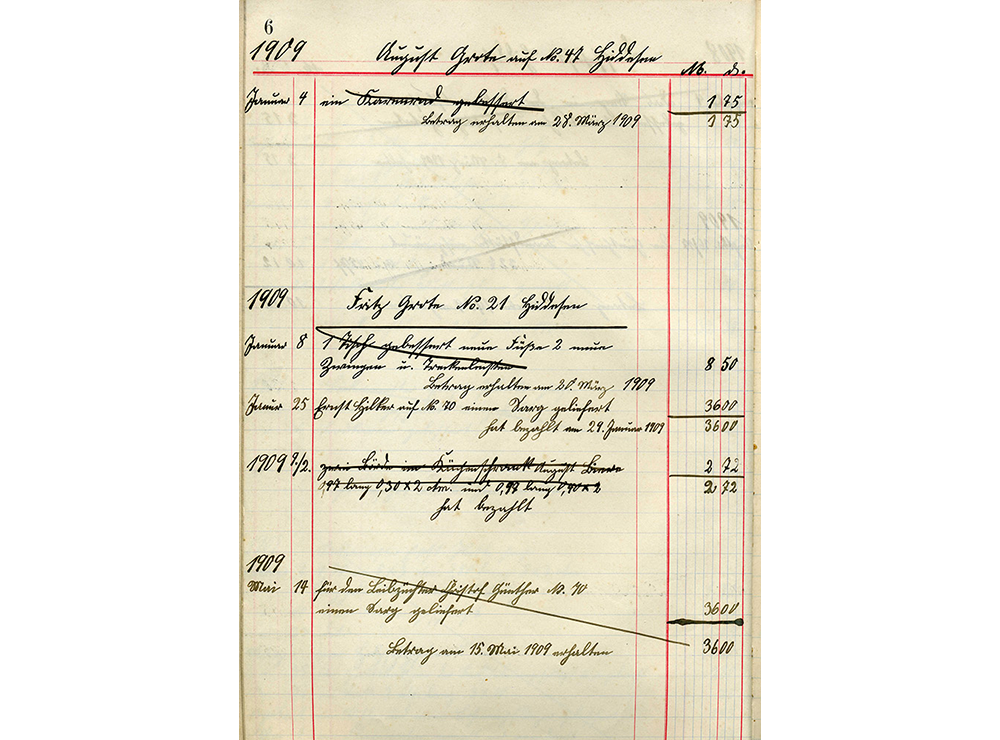 6
1909 August Grote auf No. 47 Hiddesen M. d.
Januar 4 ein Karrenrad gebessert 1 75
Betrag erhalten am 28. März 1909 1 75
1909 Fritz Grote No. 21 Hiddesen
Januar 8 1 Tisch gebessert neue Füße 2 neue
Zwingen u. 8 50
Betrag erhalten am 28. März 1909
Januar 25 Ernst Hilker auf No. 70 einen Sarg geliefert 36 00
hat bezahlt am 29. Januar 1909 36 00
1909 9/2. zwei Börde im Küchenschrank August 2 72
0,97 lang 0,30 x 2 und 0,97 lang 0,40 x 2 2 72
hat bezahlt
1909
Mai 14 für den Leibzüchter Christof Günther No. 70
einen Sarg geliefert 36 00
Betrag am 15. Mai 1909 erhalten 36 00